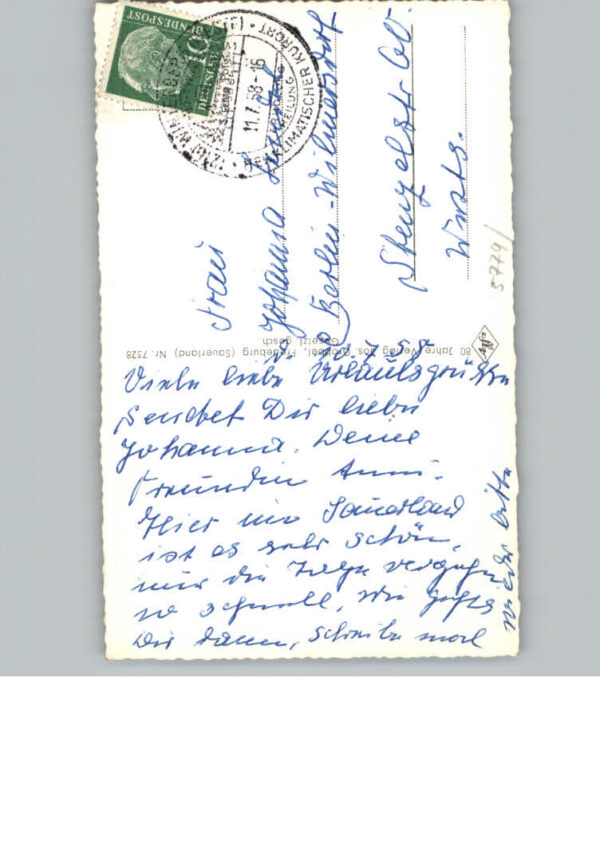 10
DEUTSCHE
BUNDESPOST
11.7.58-16
HEILKLIMATISCHER KURORT
Frau
Johanna
Berlin-Wilmersdorf
Stenzelstr 60
5779/
80 Jahre Verlag Jos. Grobbel, Fredeburg (Sauerland) Nr. 7528
Gesetzl. gesch.
d. 10.7.58
Viele liebe Urlaubsgrüße
sendet Dir liebe
Johanna. Deine
Freundin Anni.
Hier im Sauerland
ist es sehr schön,
nur die Tage vergehen
so schnell, wie gehts
Dir denn, schreibe mal
wieder bitte